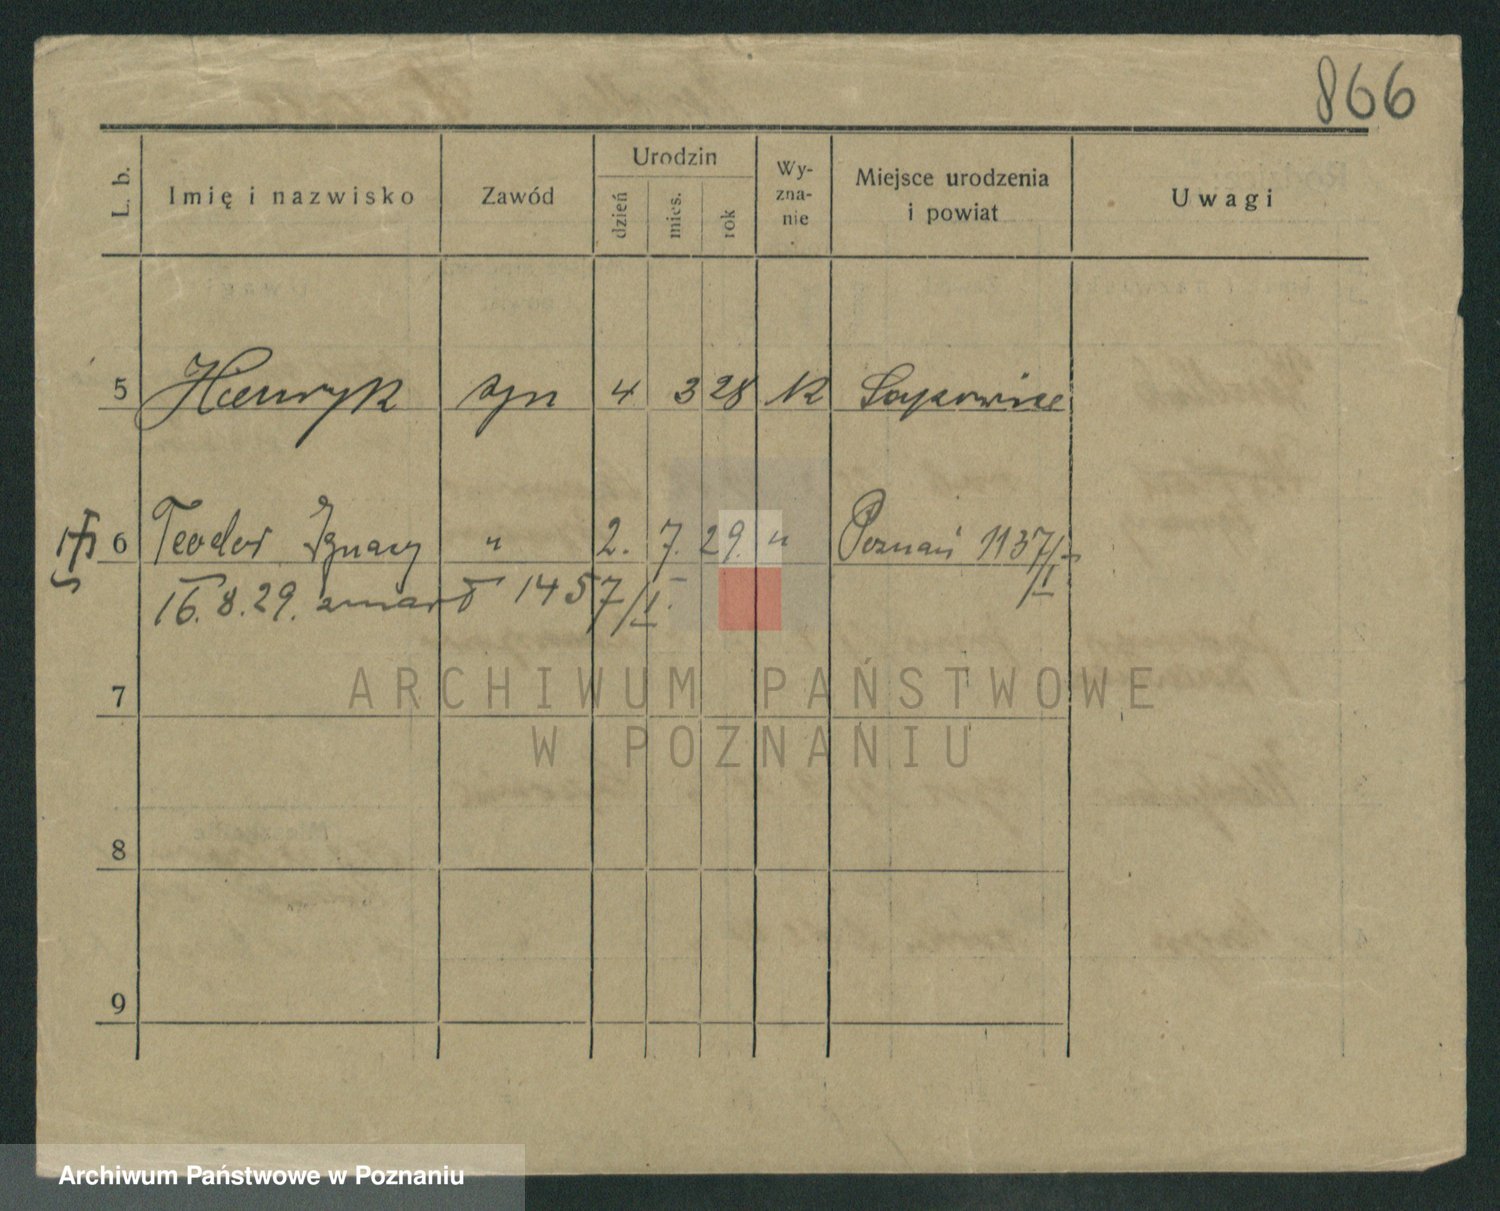 866
L. b. Imię i nazwisko Zawód Urodzin Wy-zna-nie Miejsce urodzenia i powiat Uwagi
dzień mies. rok
5 Henryk syn 4 3 28 K
6 Teodor Ignacy " 2. 7. 29. " Poznań 1137/I
16.8.29. zmarł 1457/I.
7
8
9
ARCHIWUM PAŃSTWOWE
W POZNANIU
Archiwum Państwowe w Poznaniu